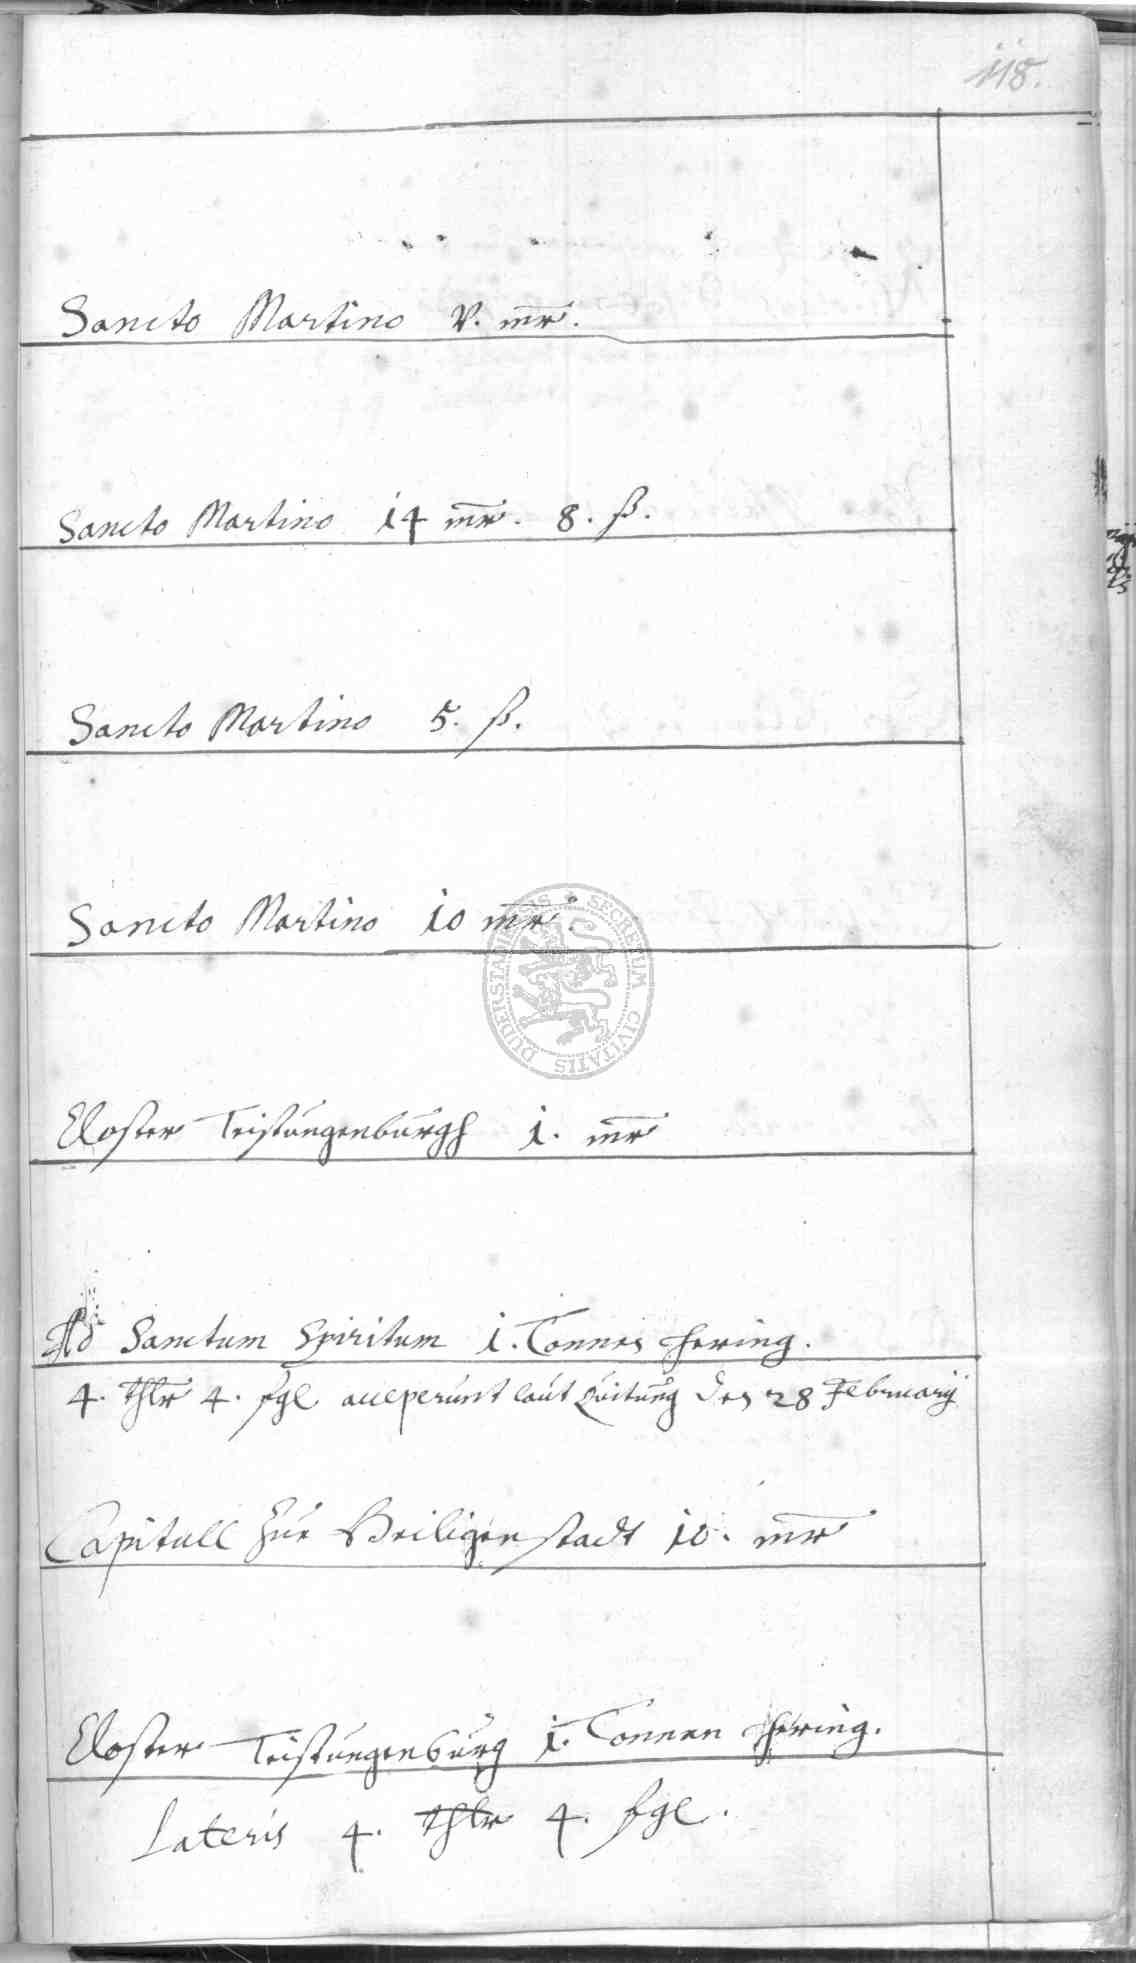 118.
Sancto Martino V. mr.
Sancto Martino 14 mr. 8. ß.
Sancto Martino 5. ß.
Sancto Martino 10 mr.
SECRETUM CIVITATIS DUDERSTADIENSIS
Closter Teistungenburgh 1. mr
Ad Sanctum Spiritum 1. Tonnen Hering.
4. thlr 4. sgl acceperunt laut Quitung den 28 February
Capitull zur Heiligenstadt 10. mr
Closter Teistungenburg 1. Tonnen Hering.
Lateris 4. thlr 4. sgl.